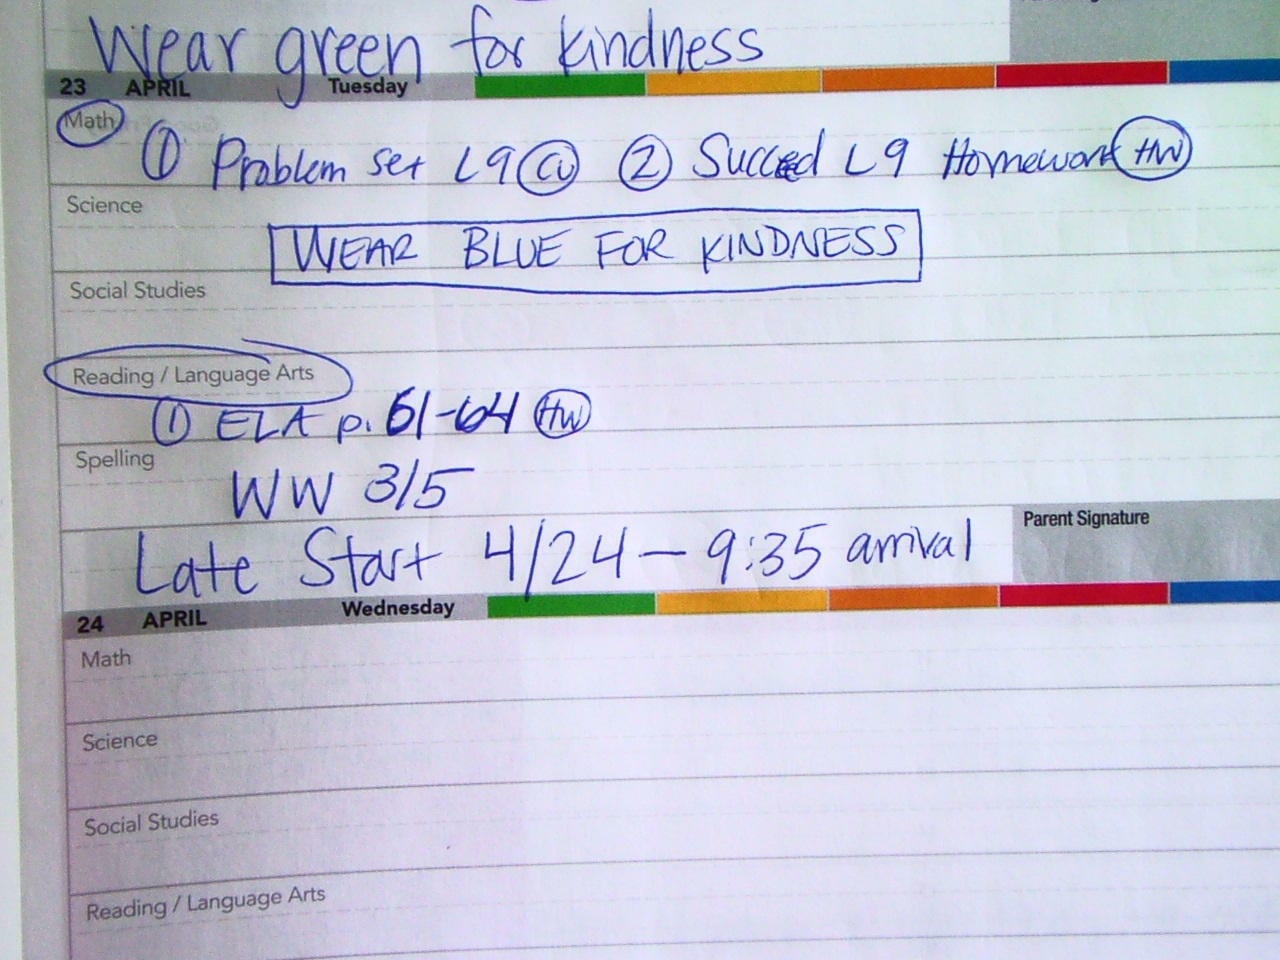 Wear green for kindness
23 APRIL Tuesday
Math
① Problem set L9 CW ② Succeed L9 Homework HW
Science
WEAR BLUE FOR KINDNESS
Social Studies
Reading / Language Arts
① ELA p. 61-64 HW
Spelling
WW 3/5
Late Start 4/24 - 9:35 arrival
Parent Signature
24 APRIL Wednesday
Math
Science
Social Studies
Reading / Language Arts